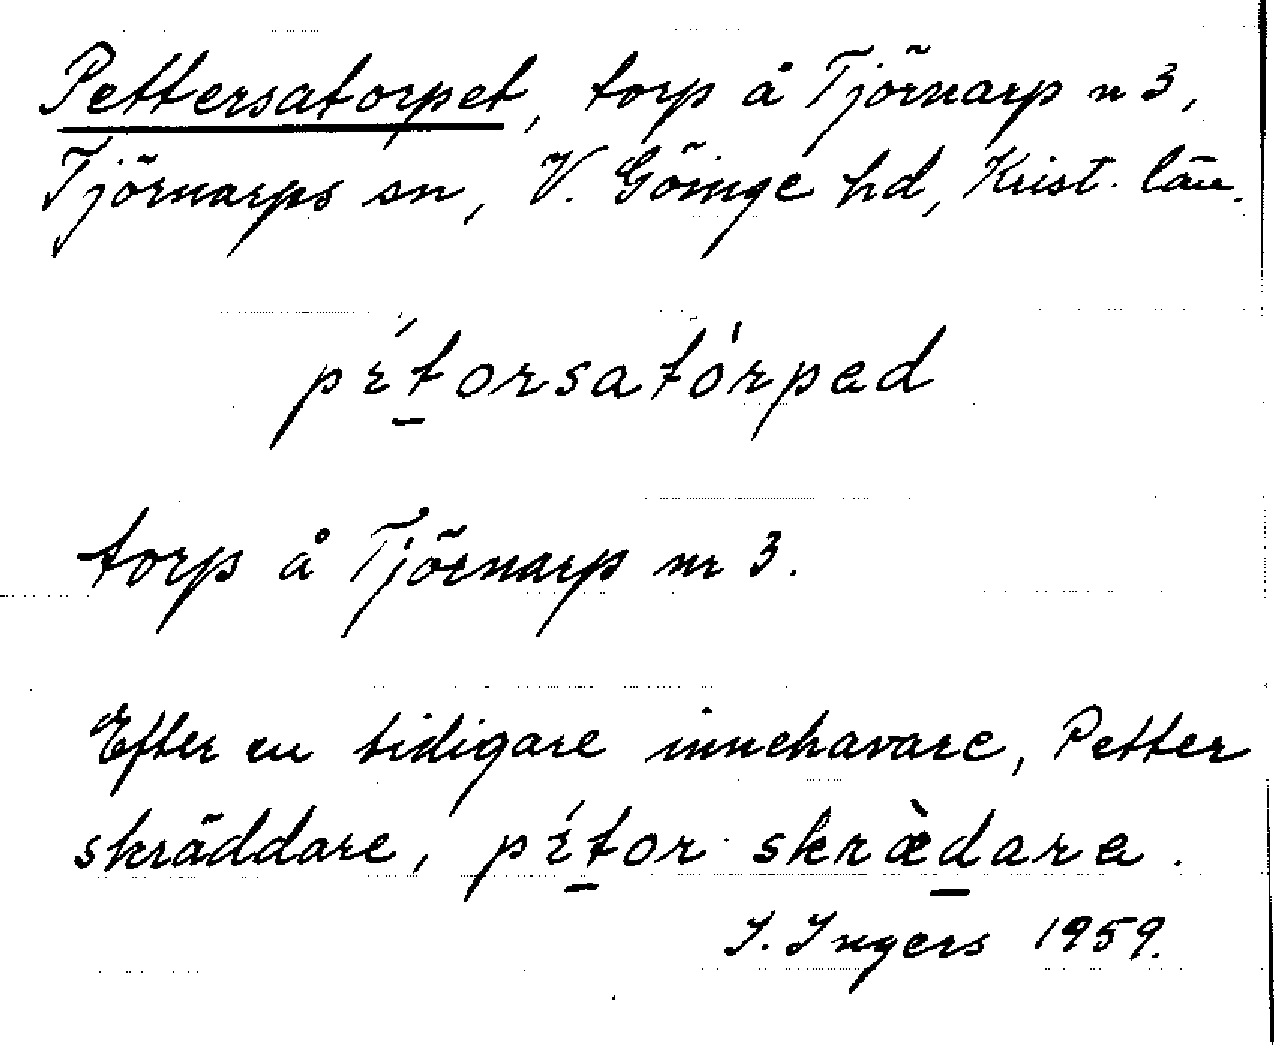 Pettersatorpet, torp å Tjörnarp n 3,
Tjörnarps sn, V. Göinge hd, Krist. län.
pɛ́t̲orsatórpəd
torp å Tjörnarp nr 3.
Efter en tidigare innehavare, Petter
skräddare, pɛ́t̲or skræ̀d̲arə.
I. Ingers 1959.